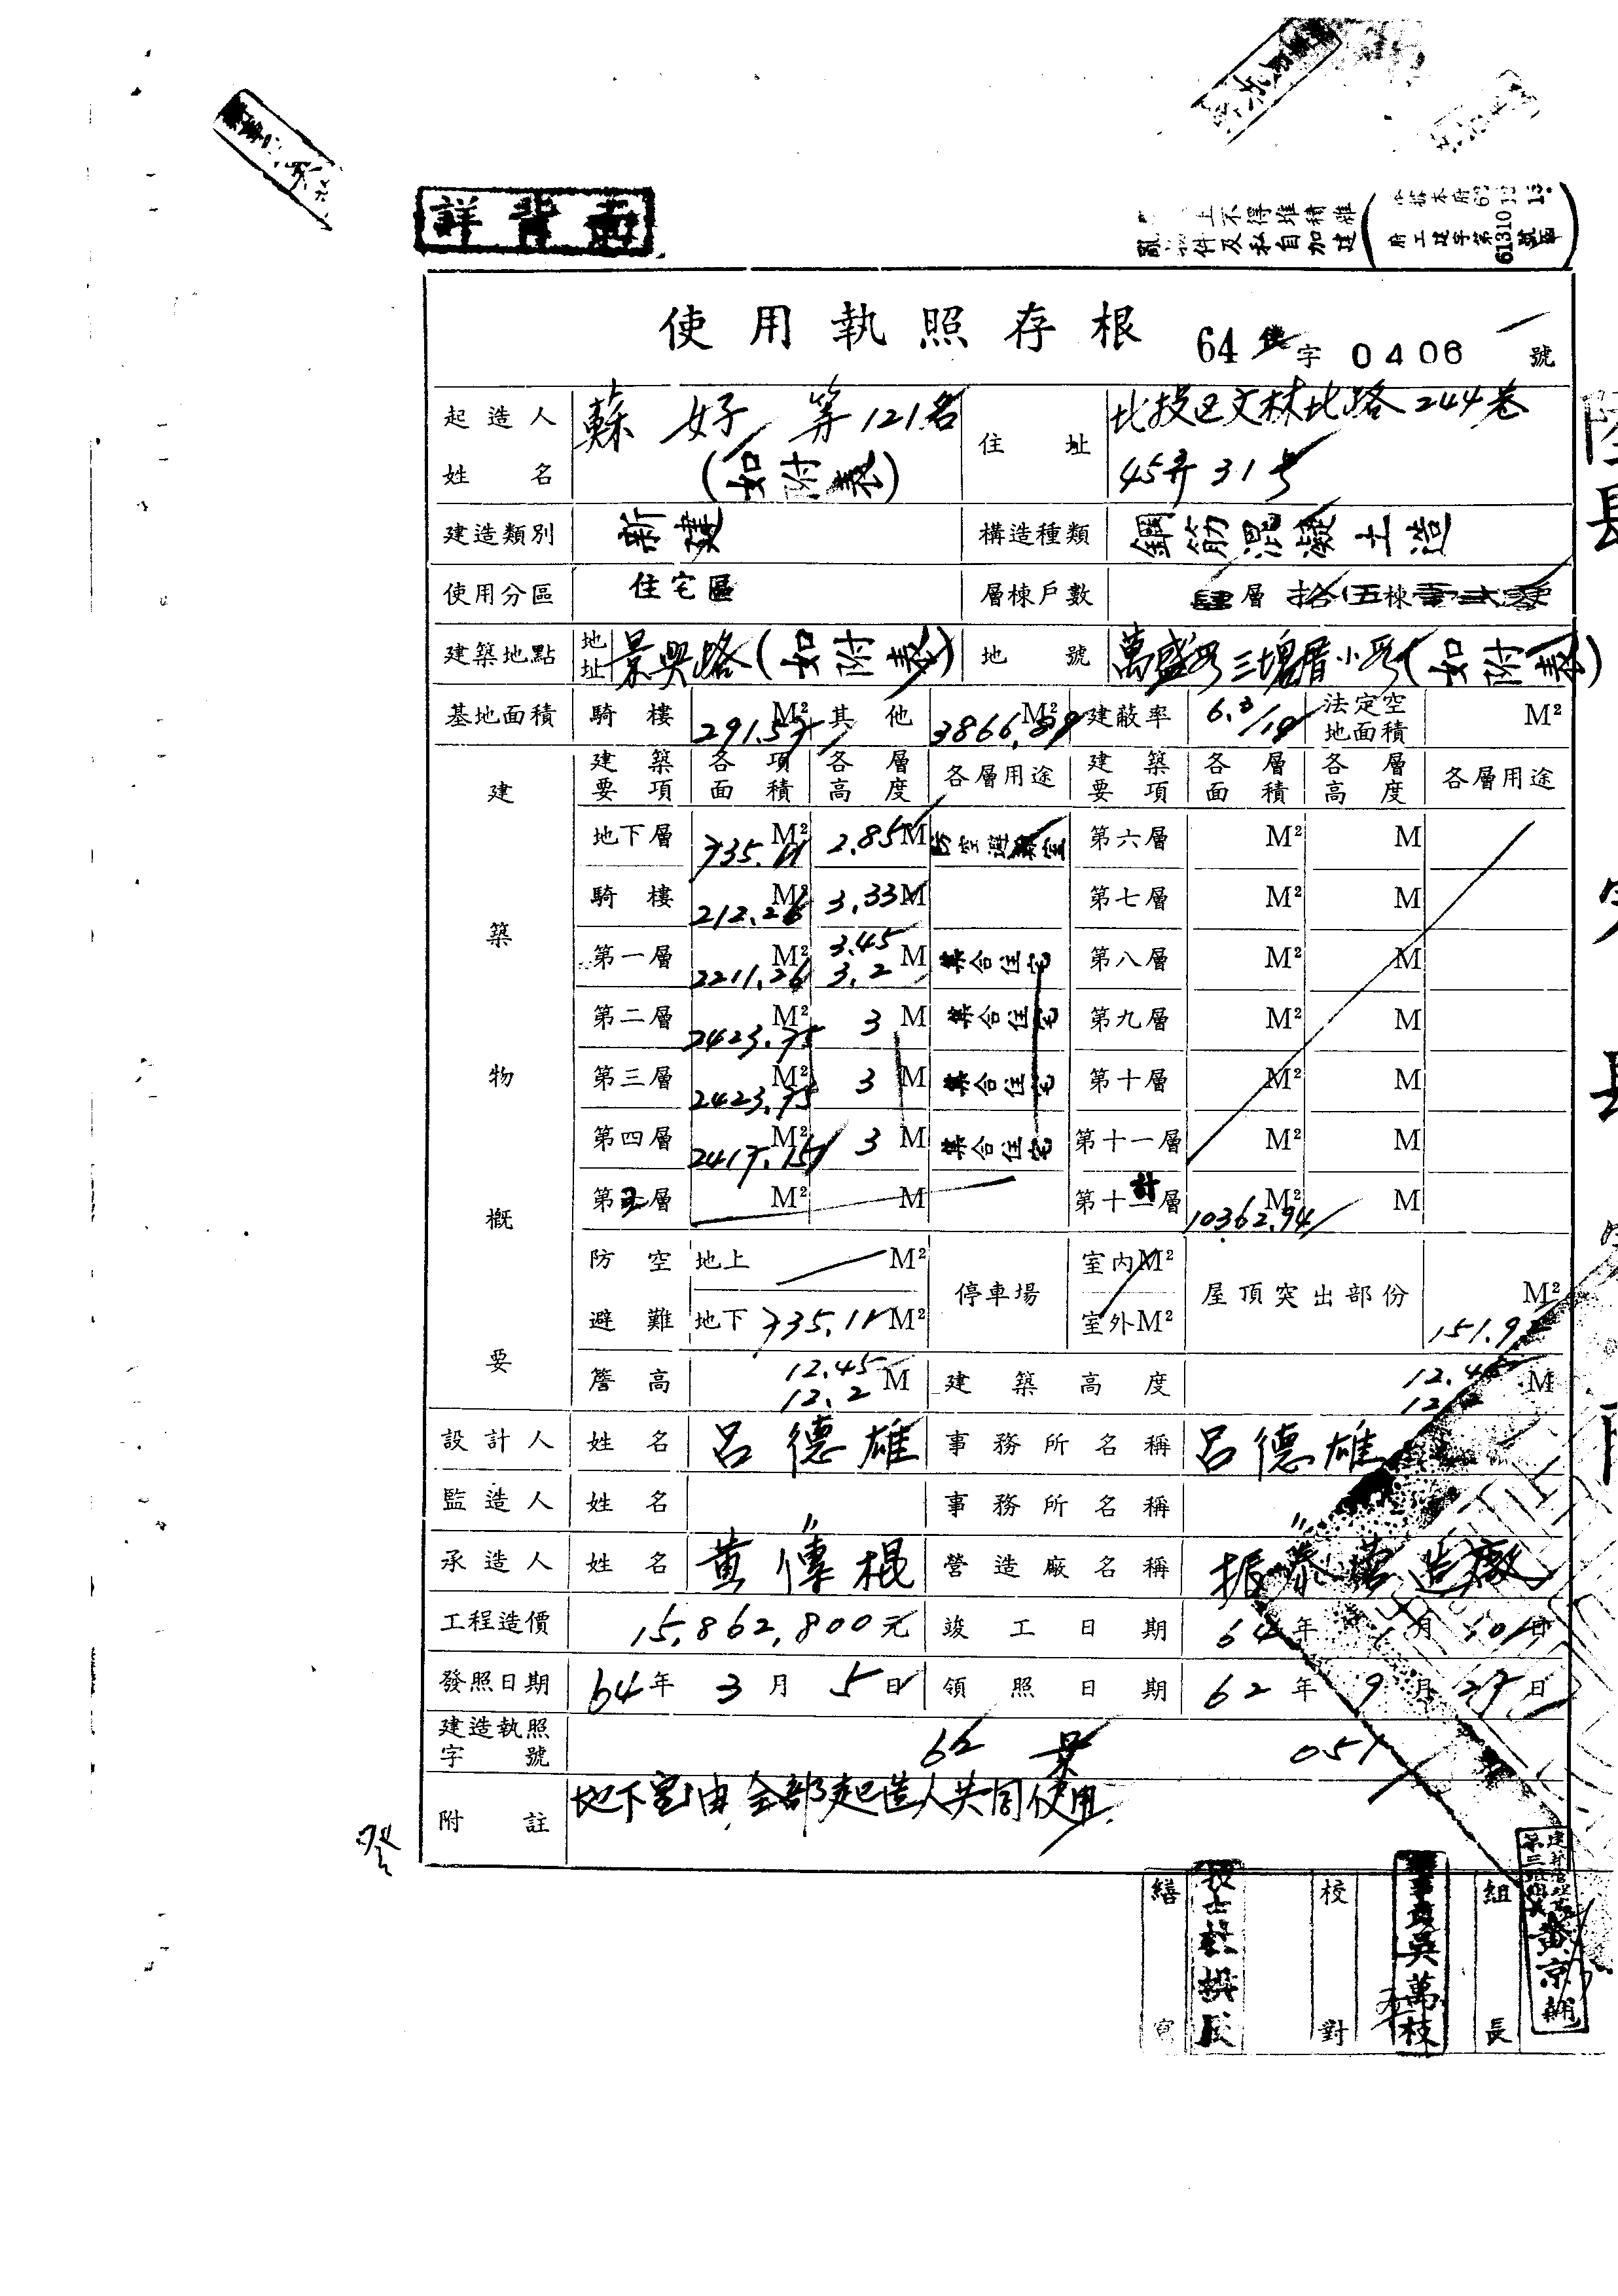 詳背面
使用執照存根 64使字0406號
起造人姓名 蘇好等121名(如附表) 住址 北投區文林北路244巷45弄31号
建造類別 新建 構造種類 鋼筋混凝土造
使用分區 住宅區 層棟戶數 肆層拾伍棟
建築地點 地址 景興路(如附表) 地號 萬盛段三塊厝小段(如附表)
基地面積 騎樓 291.57 M² 其他 3866.89 M² 建蔽率 法定空地面積 M²
建築物概要
建築要項 各項面積 各層高度 各層用途 建築要項 各層面積 各層高度 各層用途
地下層 735.11 M² 2.85 M 防空避難室 第六層 M² M
騎樓 212.26 M² 3.33 M 第七層 M² M
第一層 2211.26 M² 3.45 3.2 M 集合住宅 第八層 M² M
第二層 2423.75 M² 3 M 集合住宅 第九層 M² M
第三層 2423.75 M² 3 M 集合住宅 第十層 M² M
第四層 2417.15 M² 3 M 集合住宅 第十一層 M² M
第五層 M² M 第十二層 計 10362.94 M² M
防空避難 地上 M² 停車場 室內M² 屋頂突出部份 M²
地下 735.11 M² 室外M² 151.92
簷高 12.45 12.2 M 建築高度 12.45 12.2 M
設計人 姓名 呂德雄 事務所名稱 呂德雄
監造人 姓名 〃 事務所名稱 〃
承造人 姓名 黃傳棍 營造廠名稱 振泰營造廠
工程造價 15,862,800元 竣工日期 64年 月 日
發照日期 64年3月5日 領照日期 62年9月27日
建造執照字號 62 景 051
附註 地下室由全部起造人共同使用
繕寫 校對 吳萬枝 組長 黃京